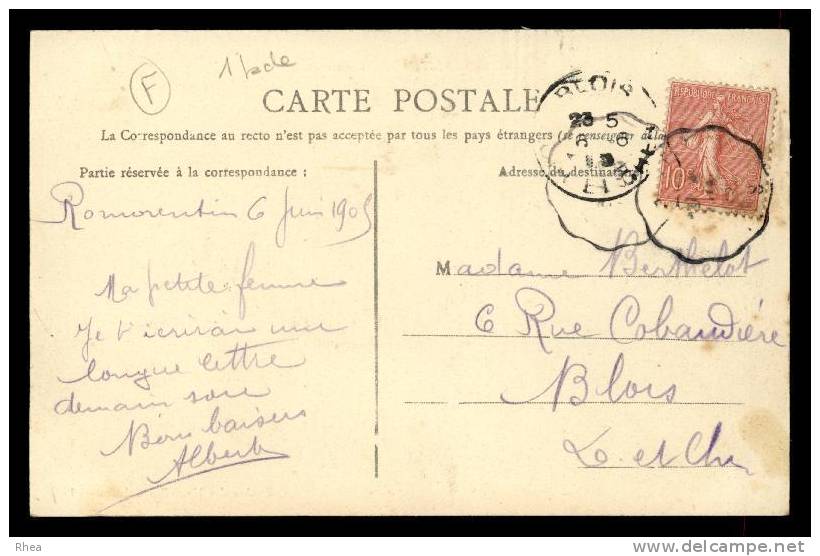 F
CARTE POSTALE
La Correspondance au recto n'est pas acceptée par tous les pays étrangers (se renseigner
Partie réservée à la correspondance :
Adresse du destinataire
BLOIS
23 5
6 - 6
REPUBLIQUE FRANÇAISE
10
Romorentin 6 Juin 1905
Ma petite femme
Je t'écrirai une
longue lettre
demain soir
Bons baisers
Albert
Madame Berthelot
6 Rue Cobaudière
Blois
L. et Cher
Rhea
www.delcampe.net